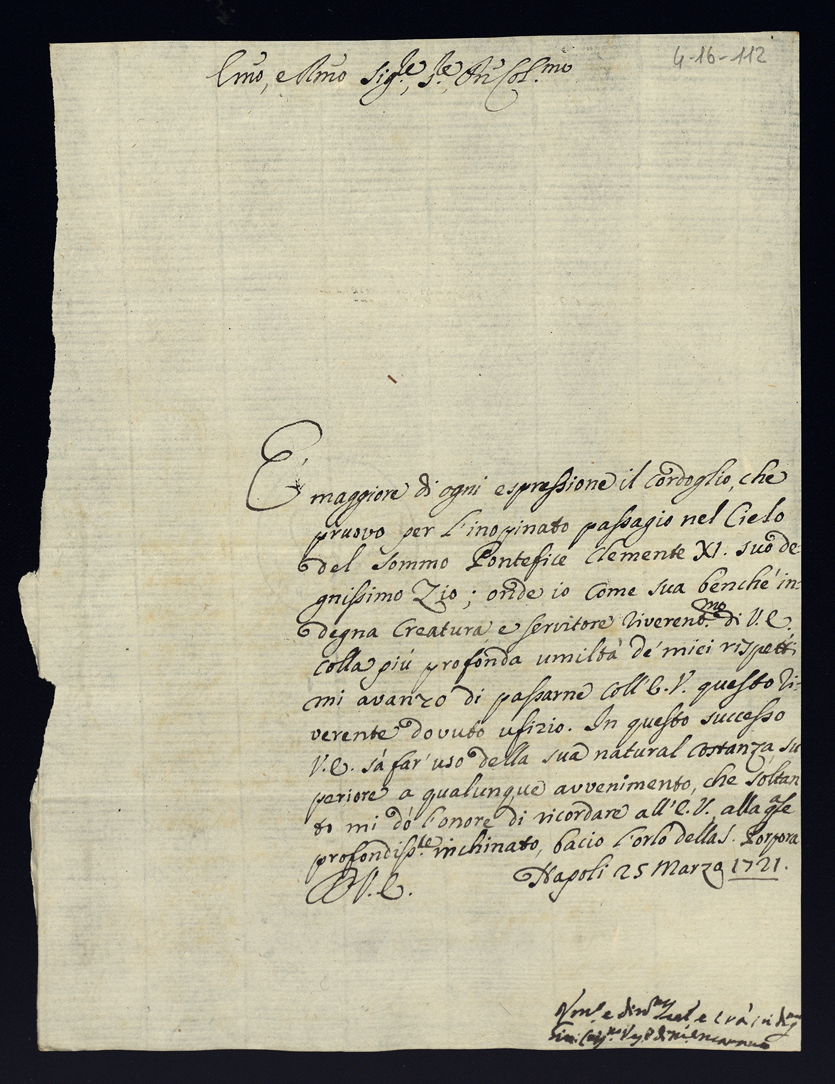 4-16-112
Emo, e Rmo Sig.re, S.re, Pñ Col.mo
E' maggiore di ogni espressione il cordoglio, che
pruovo per l'inopinato passagio nel Cielo
del Sommo Pontefice Clemente XI. suo de-
gnissimo Zio; onde io come sua benche in-
degna Creatura e servitore riverend.mo di V.E.
colla più profonda umiltà de' miei rispetti
mi avanzo di passarne coll'E.V. questo ri-
verente dovuto ufizio. In questo successo
V.E. sà far' uso della sua natural costanza su
periore a qualunque avvenimento, che soltan
to mi dò l'onore di ricordare all'E.V. alla qle
profondiss.te inchinato, bacio l'orlo della S. Porpora
D V.E. Napoli 25 Marzo 1721.